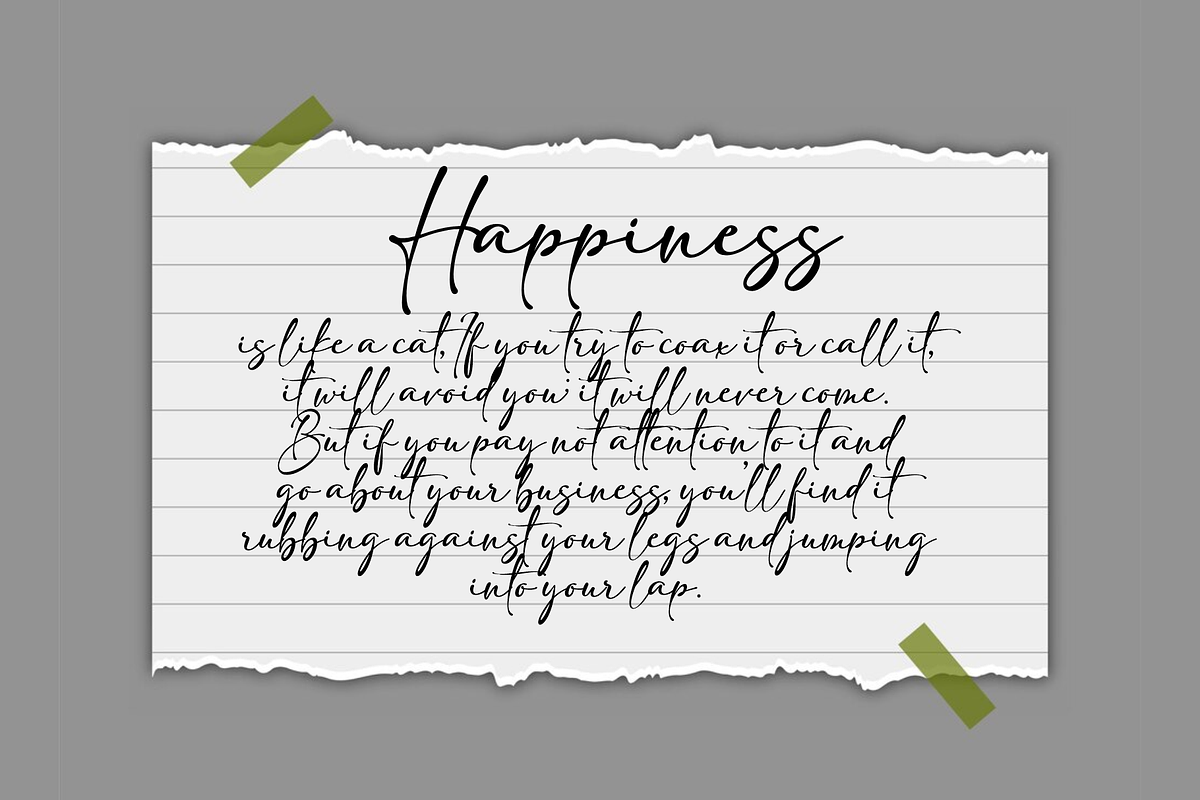 Happiness
is like a cat, If you try to coax it or call it,
it will avoid you; it will never come.
But if you pay not attention to it and
go about your business, you'll find it
rubbing against your legs and jumping
into your lap.